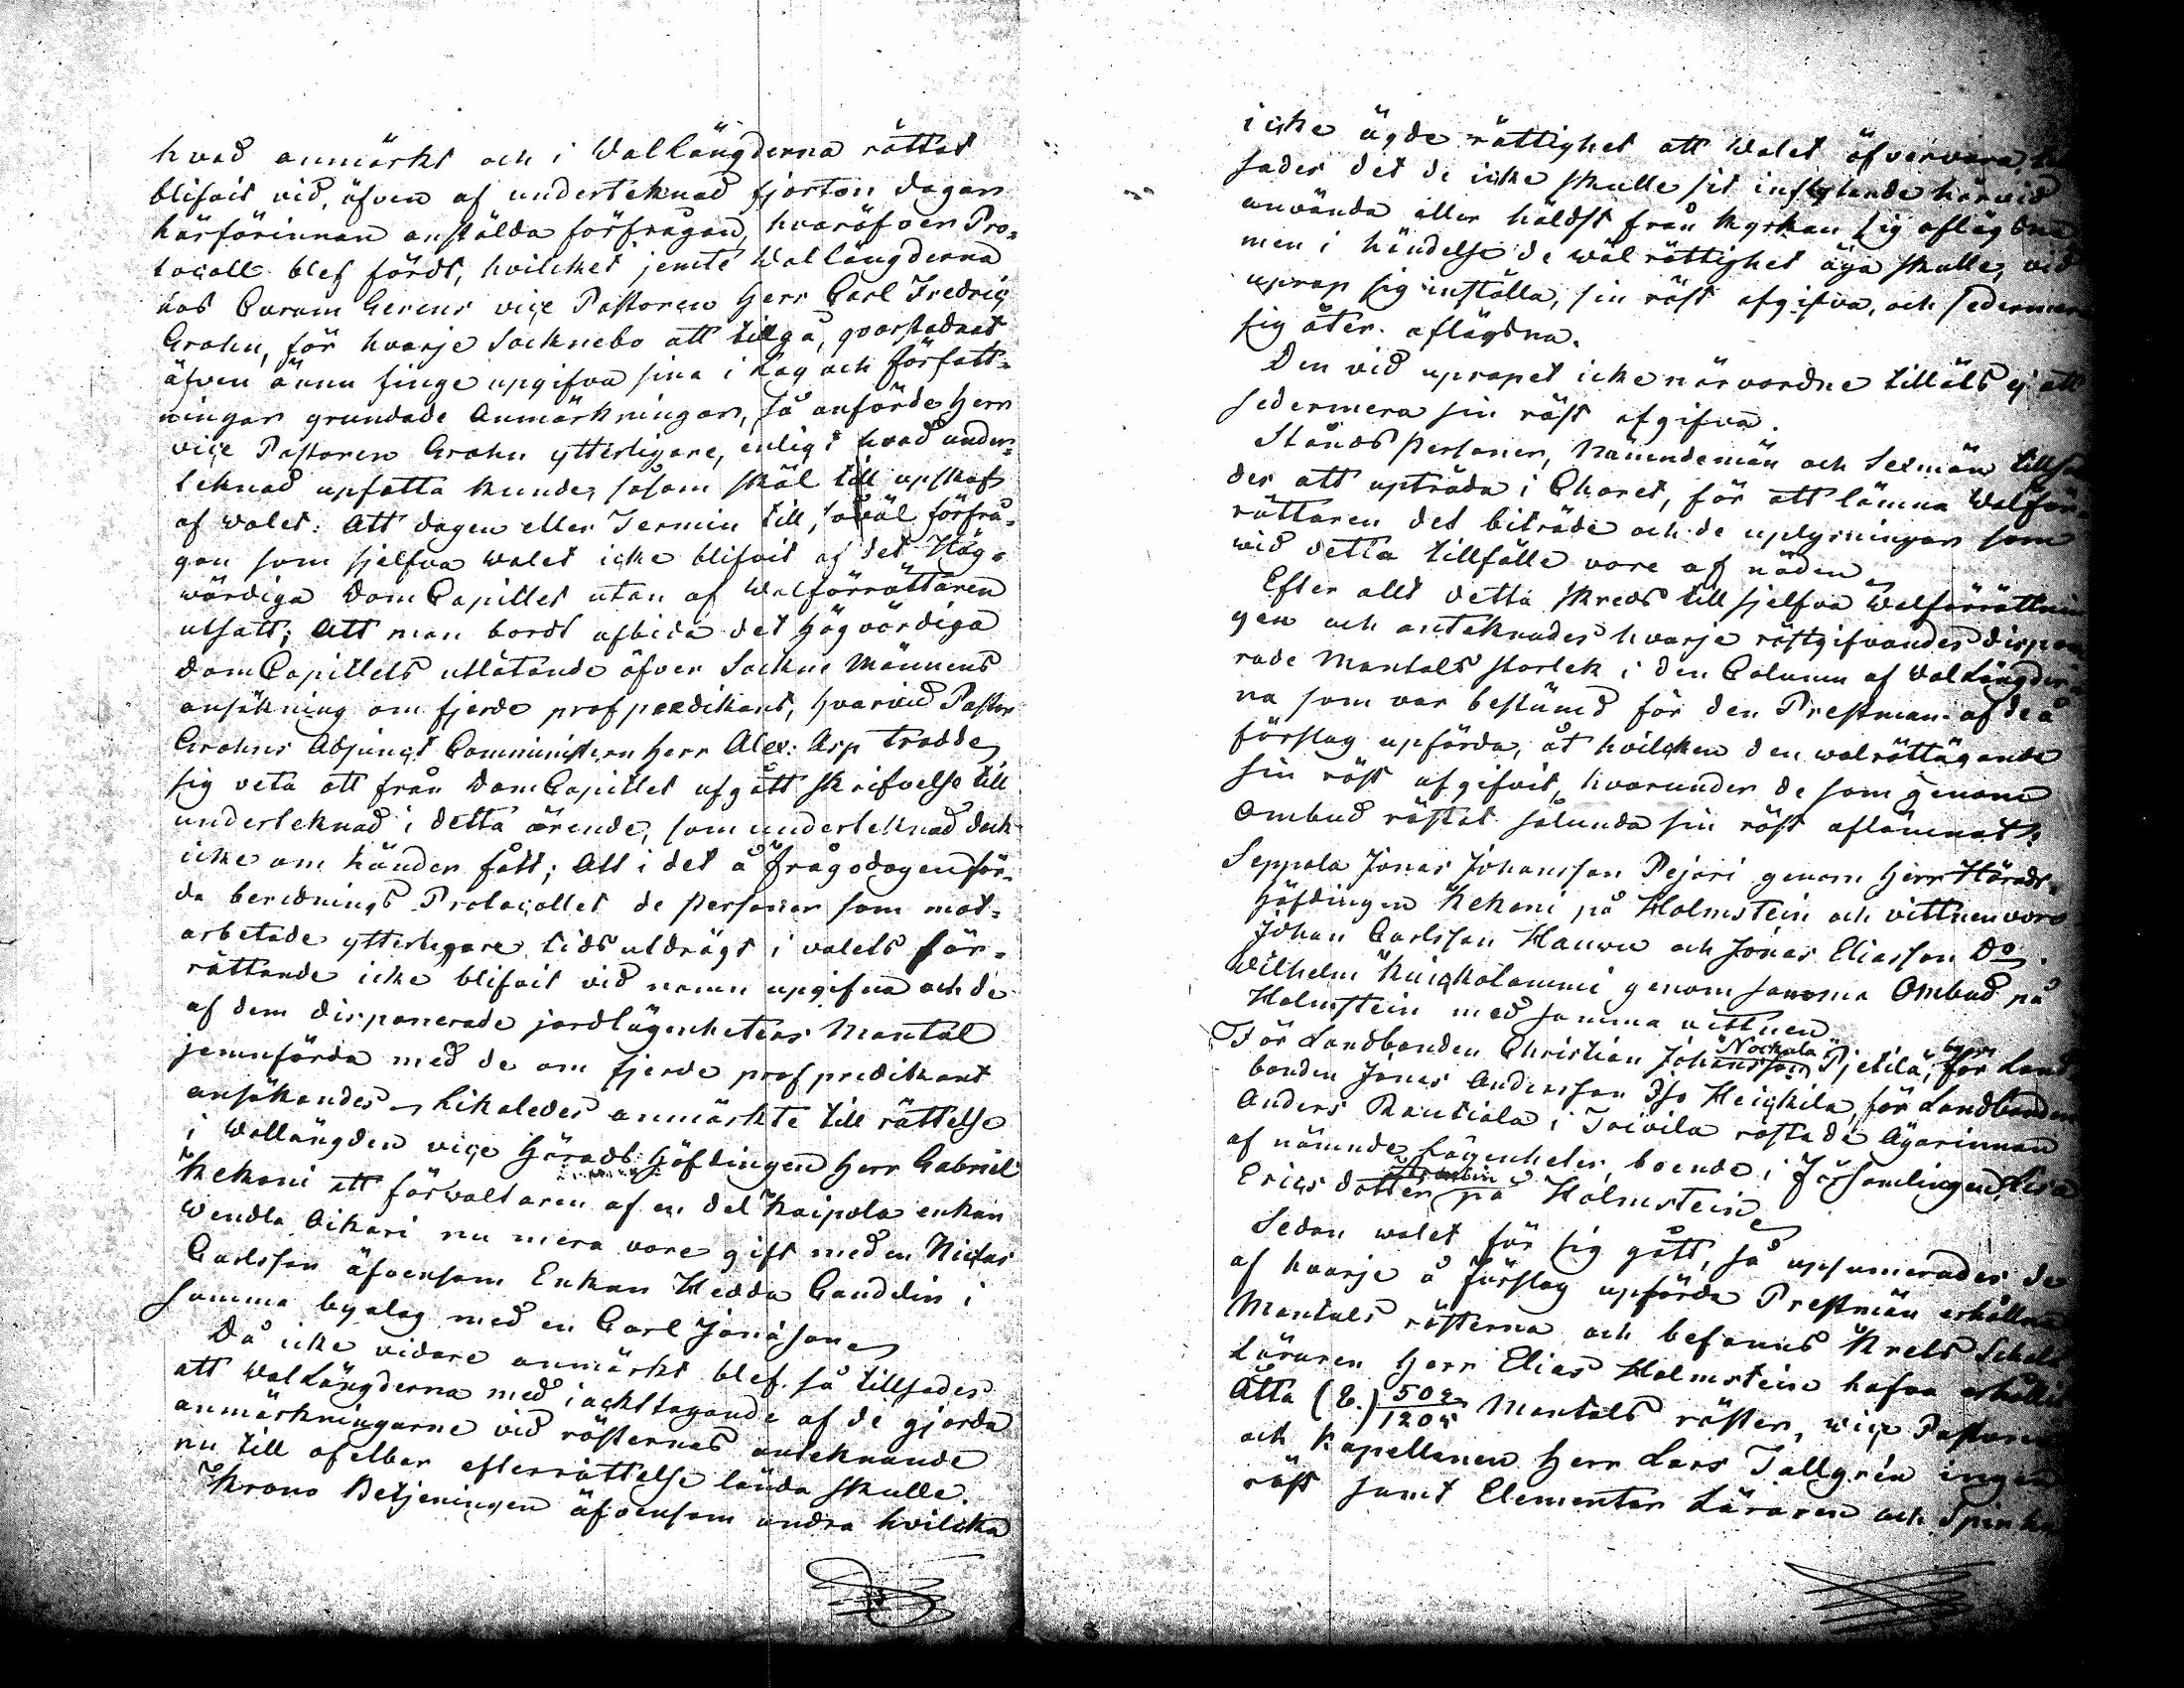 hvad anmärkt och i Wallängderna rättat
blifvit vid, äfven af underteknad fjorton dagar
härförinnan anstälda förfrågan, hvaröfver Pro-
tocoll blef fördt, hvilcket jemte Wallängderna
hos Curam Gerens viçe Pastoren Herr Carl Fredric
Grahn, för hvarje Socknebo att tillgå, qvarstadnat
äfven ännu finge upgifva sina i Lag och Författ-
ningar grundade Anmärkningar, så anförde Herr
viçe Pastoren Grahn ytterligare, enligt hvad under-
teknad upfatta kunde, såsom skäl till upskof
af valet: Att dagen eller Termin till, såväl förfrå-
gan som sjelfva valet icke blifvit af det Hög-
wördiga DomCapitlet utan af Walförrättaren
utsatt; Att man bordt afbida det Högvördiga
DomCapitlets utlåtande öfver Sockne Männens
ansökning om fjerde profpredikant, hvarvid Pastor
Grahns Adjunct Comministern Herr Alex: Asp trodde
sig veta att från DomCapitlet afgått skrifvelse till
underteknad i detta ärende, som underteknad dock
icke om händer fått; Att i det å Frågodagen för-
da berednings Protocollet de personer som mot-
arbetade ytterligare tidsutdrägt i valets för-
rättande icke blifvit vid namn upgifna och de
af dem disponerade jordlägenheters Mantal
jemnförda med de om fjerde profpredikant
ansökandes. Likaledes anmärkte till rättelse
i Wallängden viçe HäradsHöfdingen Herr Gabriel
Kekoni att förvaltaren af en del Kaipola enkan
Wendla Aikari nu mera vore gift med en Niclas
Carlsson äfvensom Enkan Hedda Gauddin i
samma byalag med en Carl Jonasson
Då icke vidare anmärkt blef, så tillsades
att Wallängderna med iackttagande af de gjorda
anmärkningarne vid rösternas anteknande
nu till ofelbar efterrättelse lända skulle.
Krono Betjeningen äfvensom andra hvilcka
icke ägde rättighet att valet öfvervara,
sades det de icke skulle sit inflytande härvid
använda eller häldst från kyrkan sig aflägsna
men i händelse de wäl rättighet äga skulle, vid
uprop sig inställa, sin röst afgifva, och sedermera
sig åter aflägsna.
Den vid upropet icke närvardne tilläts ej att
sedermera sin röst afgifva.
Stånds Personer, Nämndemän och Sexmän
der att upträda i Choret, för att lämna Walför-
rättaren det biträde och de uplysningar som
wid detta tillfälle vore af nöden
Efter allt detta skreds till sjelfva Walförrättnin
gen och anteknades hvarje röstgifvandes dispone
rade Mantals storlek i den Column af Wallängder
na som var bestämd för den Prestman af de å
förslag upförda, åt hvilcken den walrättägande
sin röst afgifvit, hvarunder de som genom
Ombud röstat sålunda sin röst aflämnat:
Seppola Jonas Johansson Pejari genom Herr Härads-
Höfdingen Kekoni på Holmstein och vittnen voro
Johan Carlsson Hauwu och Jonas Eliasson Do.
Wilhelm genom samma Ombud på
Holmstein med samma vittnen
För Landbonden Christian Johansson Nockala Pjetilä, by för Land
bonden Jonas Andersson Iso Heickila, för Landbonden
Anders Rautiala i Toivila röstade Ägarinnan
af nämnde Lägenheter, boende i Församlingen Lisa
Ericsdotter på Holmstein
Sedan valet för sig gått, så upsumerades de
af hvarje å förslag upförda Prestmän erhållna
Mantals rösterna och befanns Krets Schole
Läraren Herr Elias Holmstein hafva erhållit
Åtta (8.) 509/1205 Mantals röster, viçe Pastoren
och Kapellanen Herr Lars Tallgrén ingen
röst samt Elementar Läraren och Spinhu